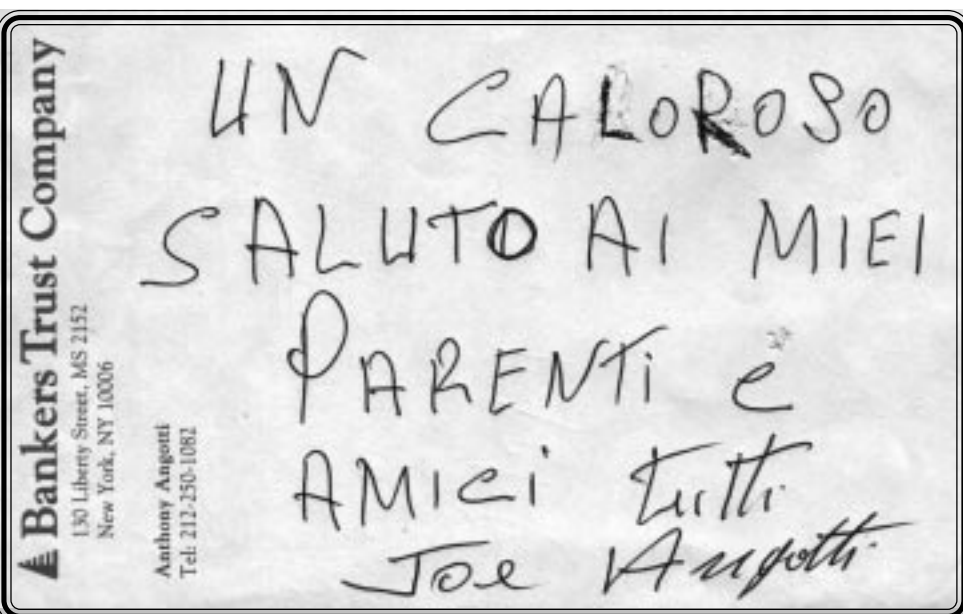 Bankers Trust Company
130 Liberty Street, MS 2152
New York, NY 10006
Anthony Angotti
Tel: 212-250-1082
UN CALOROSO
SALUTO AI MIEI
PARENTi e
AMICi tutti
Joe Angotti